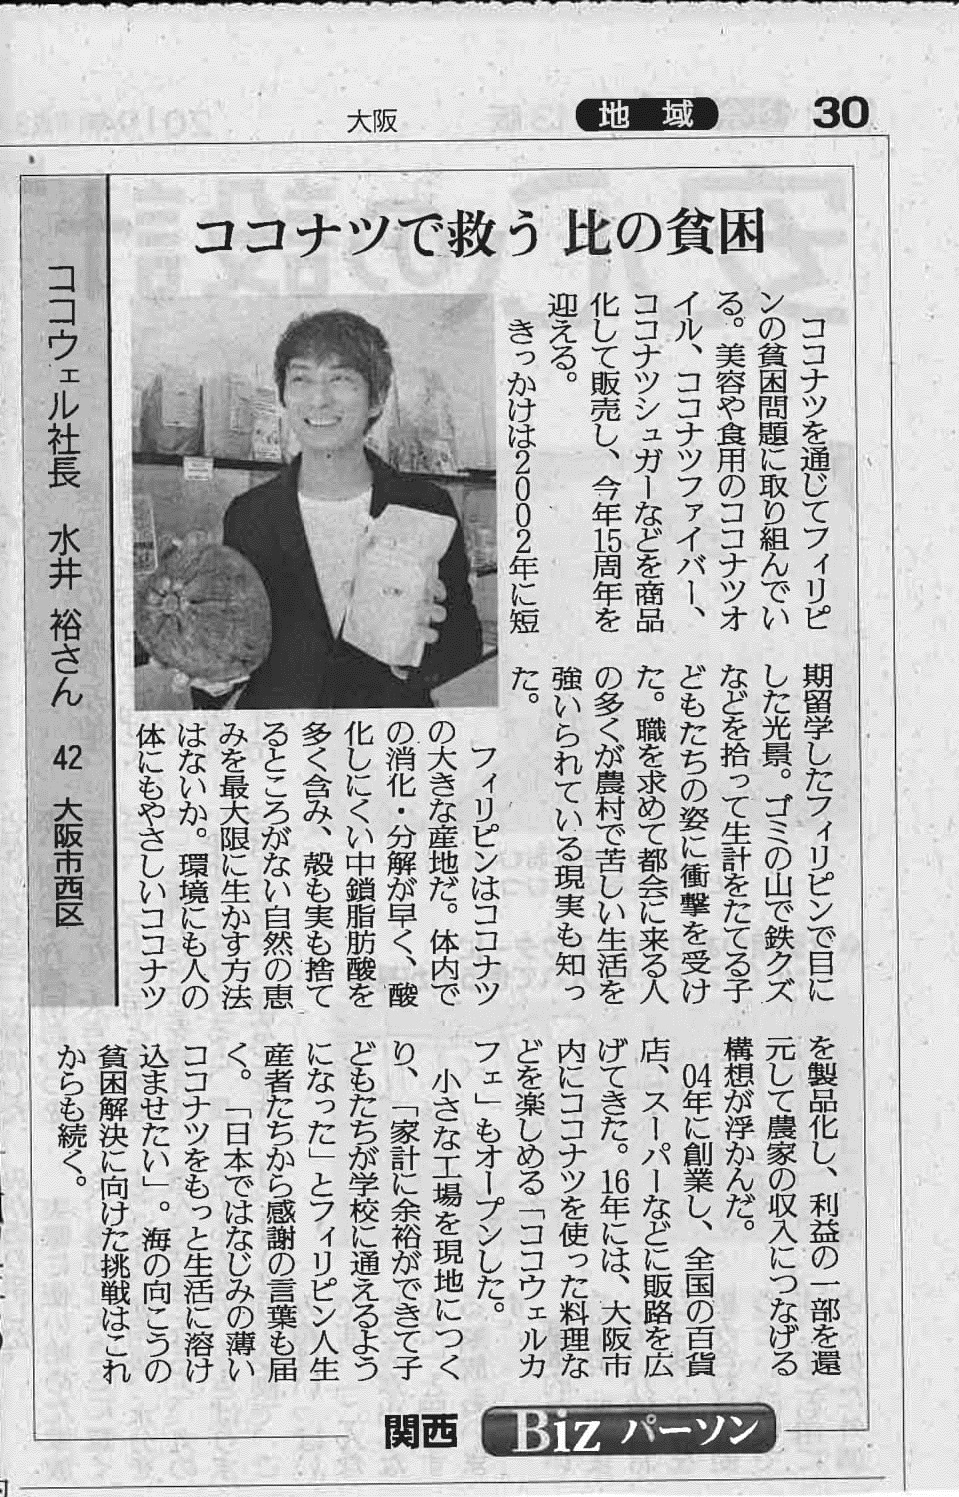 30
地域
大阪
ココナツで救う 比の貧困
ココウェル社長 水井 裕さん 42 大阪市西区
ココナツを通じてフィリピ
ンの貧困問題に取り組んでい
る。美容や食用のココナツオ
イル、ココナツファイバー、
ココナツシュガーなどを商品
化して販売し、今年15周年を
迎える。
きっかけは2002年に短
期留学したフィリピンで目に
した光景。ゴミの山で鉄クズ
などを拾って生計をたてる子
どもたちの姿に衝撃を受け
た。職を求めて都会に来る人
の多くが農村で苦しい生活を
強いられている現実も知っ
た。
フィリピンはココナツ
の大きな産地だ。体内で
の消化・分解が早く、酸
化しにくい中鎖脂肪酸を
多く含み、殻も実も捨て
るところがない自然の恵
みを最大限に生かす方法
はないか。環境にも人の
体にもやさしいココナツ
を製品化し、利益の一部を還
元して農家の収入につなげる
構想が浮かんだ。
04年に創業し、全国の百貨
店、スーパーなどに販路を広
げてきた。16年には、大阪市
内にココナツを使った料理な
どを楽しめる「ココウェルカ
フェ」もオープンした。
小さな工場を現地につく
り、「家計に余裕ができて子
どもたちが学校に通えるよう
になった」とフィリピン人生
産者たちから感謝の言葉も届
く。「日本ではなじみの薄い
ココナツをもっと生活に溶け
込ませたい」。海の向こうの
貧困解決に向けた挑戦はこれ
からも続く。
関西 Biz パーソン